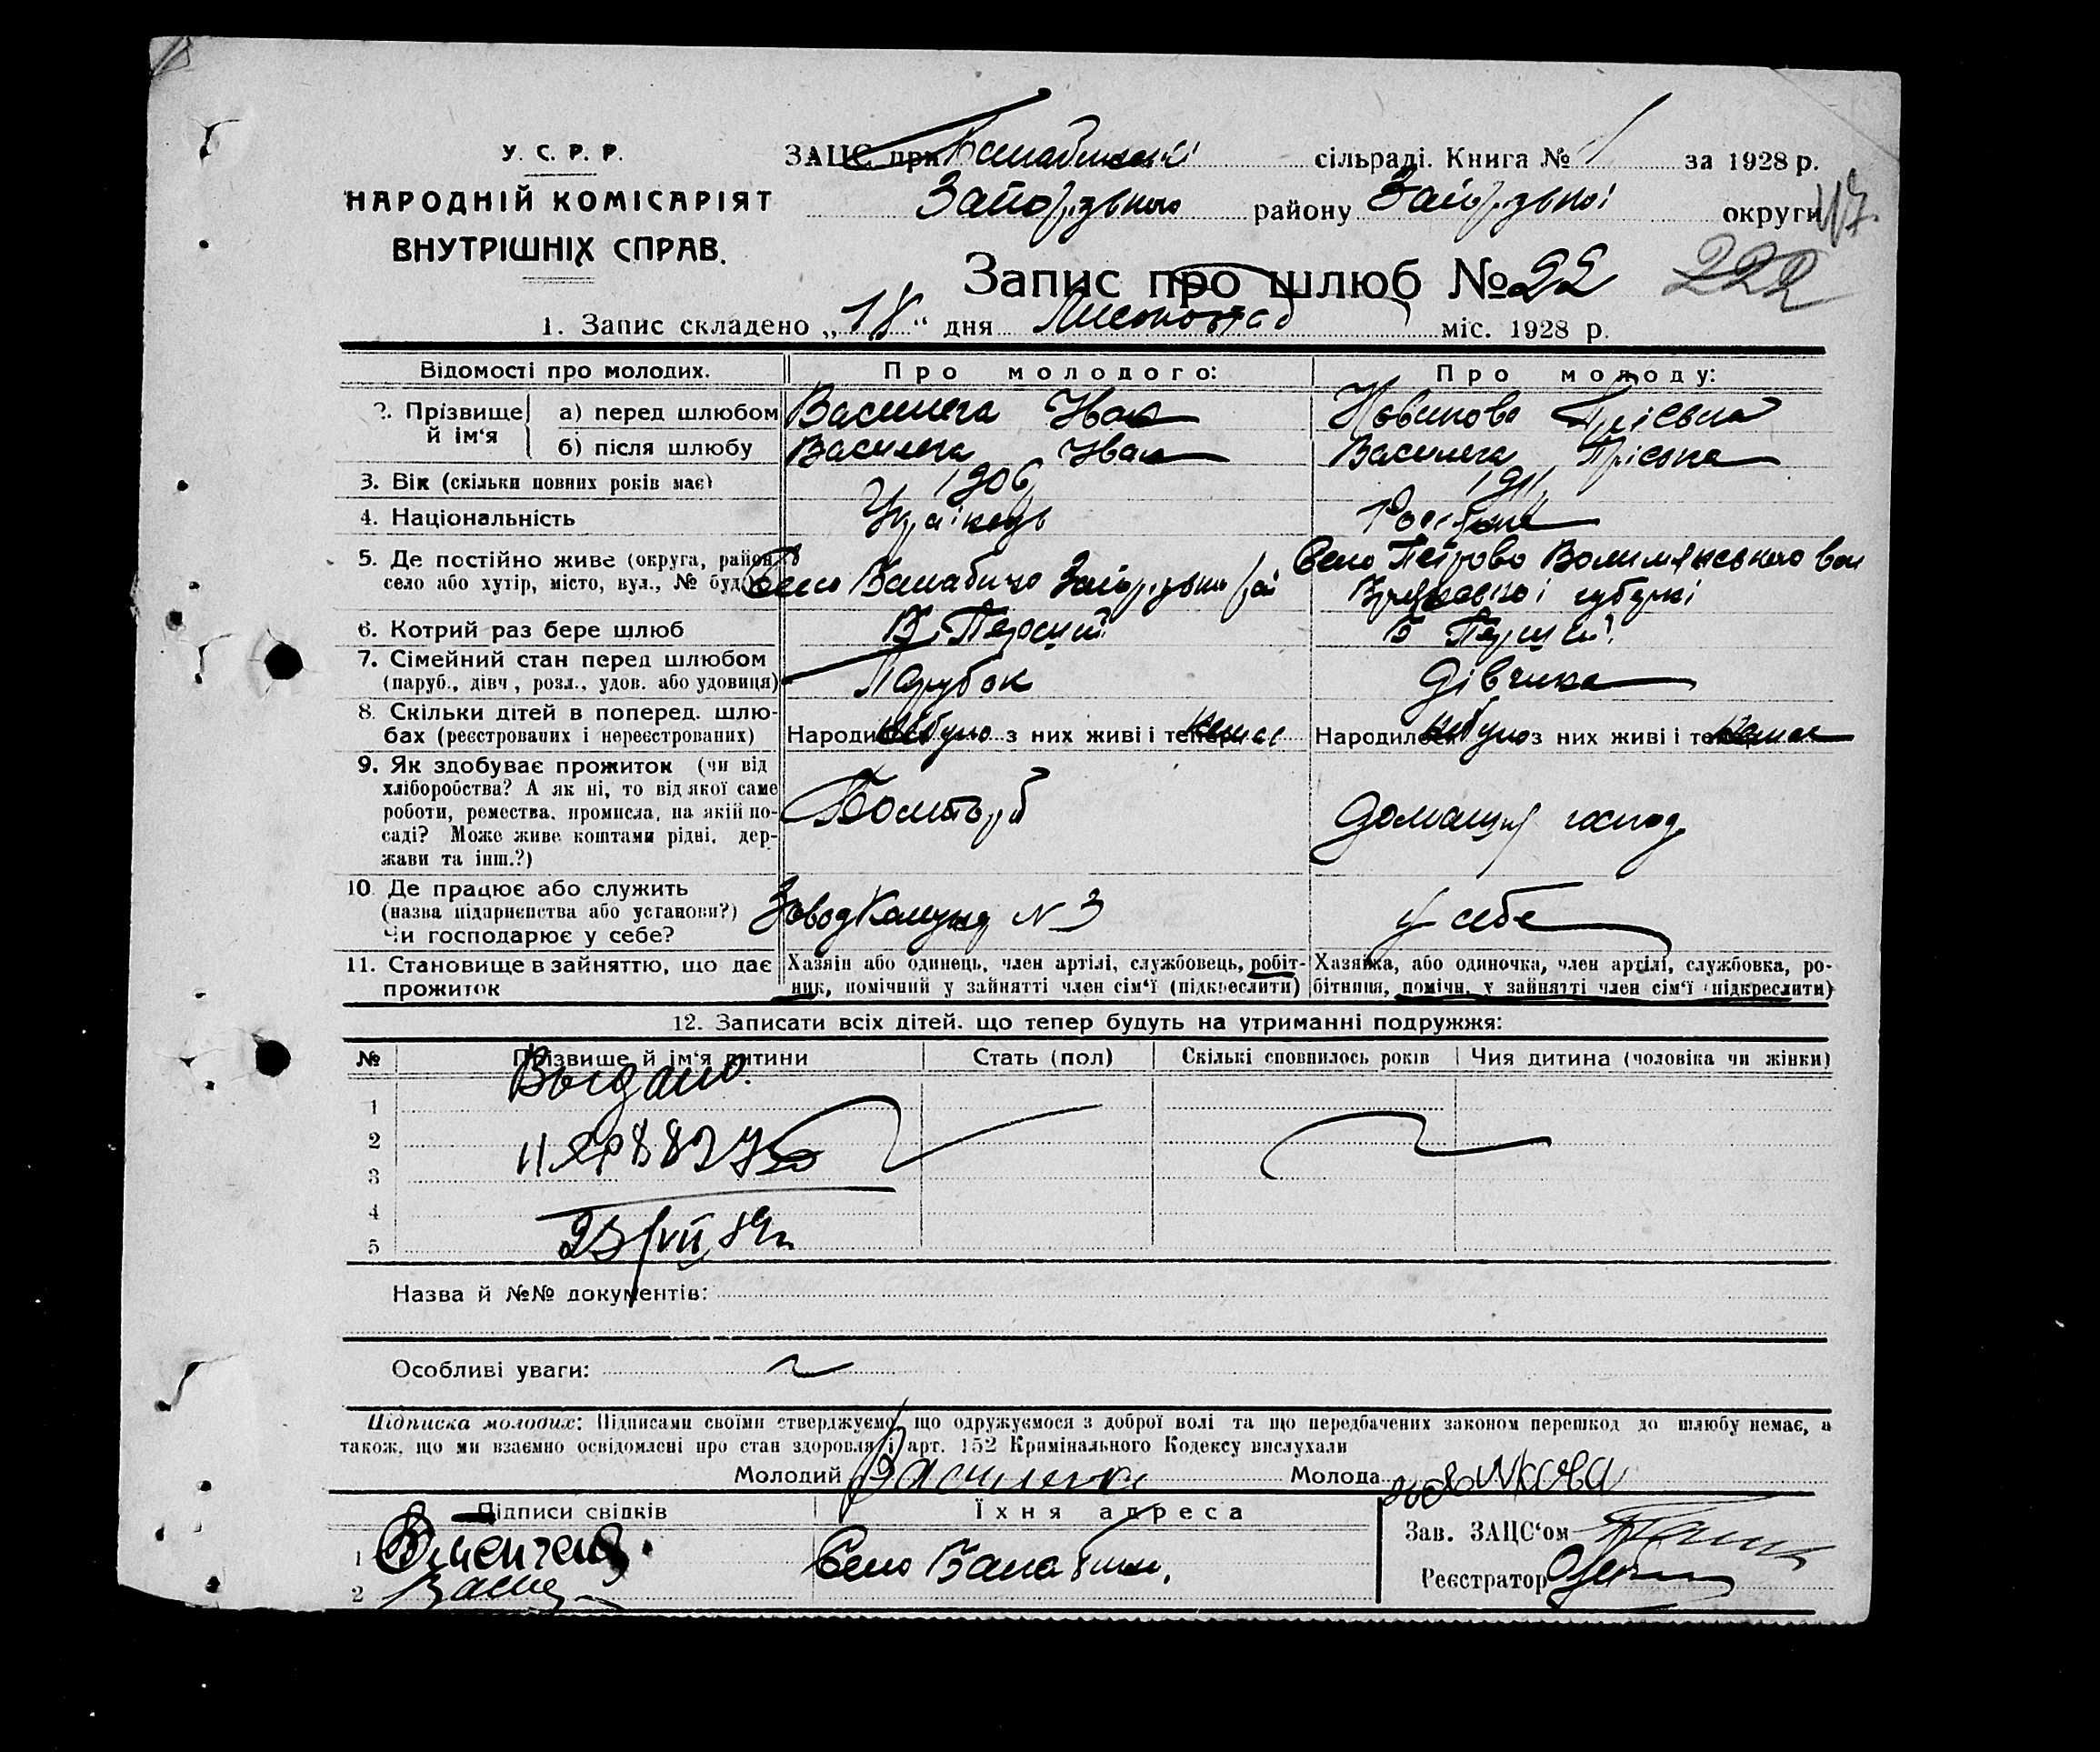 У. С. Р. Р.
НАРОДНІЙ КОМІСАРІЯТ
ВНУТРІШНІХ СПРАВ.
ЗАЦС при Балабинські сільраді. Книга № 1 за 1928 р.
району округи 117.
Запис про шлюб № 22 222
1. Запис складено „18“ дня Листопад міс. 1928 р.
Відомості про молодих. Про молодого: Про молоду:
2. Прізвище й ім‘я а) перед шлюбом Василега Іван Новикова
б) після шлюбу Василега Іван Василега Пріська
3. Вік (скільки повних років має) 1906 1911
4. Національність Українець
5. Де постійно живе (округа, район, село або хутір, місто, вул., № буд.) Село Балабино Село Петрово
губерні
6. Котрий раз бере шлюб В Перший В Перший
7. Сімейний стан перед шлюбом (паруб., дівч., розл., удов. або удовиця) Парубок Дівчина
8. Скільки дітей в поперед. шлюбах (реєстрованих і нереєстрованих) Народилося небуло з них живі і тепер немає Народилося небуло з них живі і тепер немає
9. Як здобуває прожиток (чи від хліборобства? А як ні, то від якої саме роботи, ремества, промисла, на якій посаді? Може живе коштами рідні, держави та інш.?) домашнє господ
10. Де працює або служить (назва підприємства або установи?) Чи господарює у себе? Завод Комунар N 3 у себе
11. Становище в зайняттю, що дає прожиток Хазяїн або одинець, член артілі, службовець, робітник, помічний у зайнятті член сім‘ї (підкреслити) Хазяйка, або одиночка, член артілі, службовка, робітниця, помічн. у зайнятті член сім‘ї (підкреслити)
12. Записати всіх дітей, що тепер будуть на утриманні подружжя:
№ Прізвище й ім‘я дитини Стать (пол) Скількі сповнилось років Чия дитина (чоловіка чи жінки)
Выдано
1
2
3
4
5
Назва й №№ документів:
Особливі уваги:
Підписка молодих: Підписами своїми стверджуємо, що одружуємося з доброї волі та що передбачених законом перешкод до шлюбу немає, а
також, що ми взаємно освідомлені про стан здоровля і арт. 152 Кримінального Кодексу вислухали
Молодий Молода Новикова
Підписи свідків Їхня адреса
Зав. ЗАЦС‘ом
1 Село Балабино.
Реєстратор
2